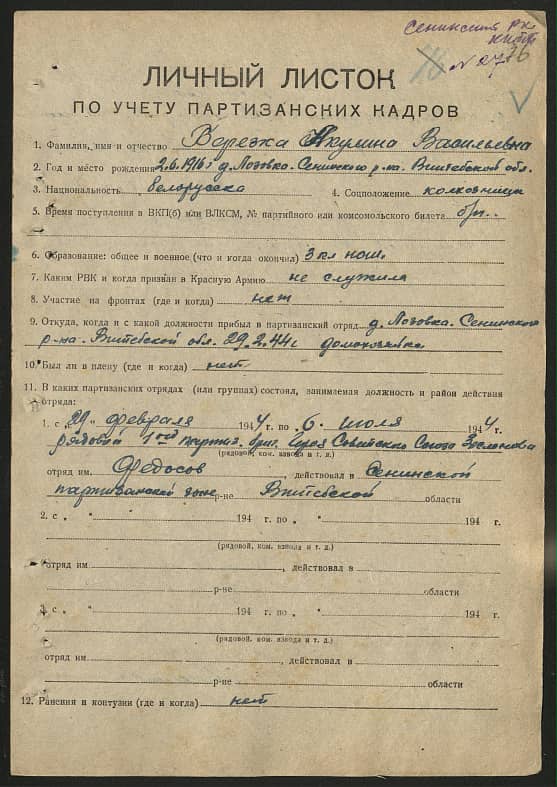 Сенинский рк
кпб
№ 2776
ЛИЧНЫЙ ЛИСТОК
ПО УЧЕТУ ПАРТИЗАНСКИХ КАДРОВ
1. Фамилия, имя и отчество Верезка Акулина Васильевна
2. Год и место рождения 2.6.1916 г. д. Лозовка. Сенинского р-на. Витебской обл.
3. Национальность белорусска 4. Соцположение колхозница
5. Время поступления в ВКП(б) или ВЛКСМ, № партийного или комсомольского билета б/п.
6. Образование: общее и военное (что и когда окончил) 3 кл
7. Каким РВК и когда призван в Красную Армию не служила
8. Участие на фронтах (где и когда) нет
9. Откуда, когда и с какой должности прибыл в партизанский отряд д. Лозовка. Сенинского
р-на. Витебской обл. 29.2.44 г домохозяйка
10. Был ли в плену (где и когда) нет
11. В каких партизанских отрядах (или группах) состоял, занимаемая должность и район действия
отряда:
1. с „29„ февраля 1944 г. по „6„ июля 1944 г.
рядовой 1ой партиз. бриг. Героя Советского Союза Заслонова
(рядовой, ком. взвода и т. д.)
отряд им Федосов, действовал в Сенинской
партизанской зоне р-не Витебской области
2. с „ „ 194 г. по „ „ 194 г.
(рядовой, ком. взвода и т. д.)
отряд им , действовал в
р-не области
3. с „ „ 194 г. по „ „ 194 г.
(рядовой, ком. взвода и т. д.)
отряд им , действовал в
р-не области
12. Ранения и контузии (где и когда) нет